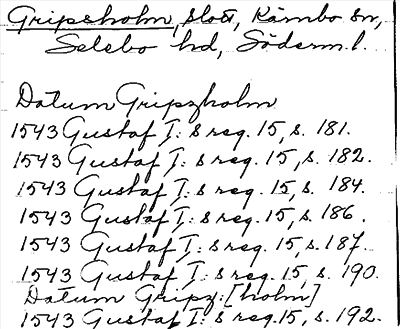 Gripsholm, slott, Kärnbo sn,
Selebo hd, Söderm. l.
Datum Gripzholm
1543 Gustaf I: s reg. 15, s. 181.
1543 Gustaf I: s reg. 15, s. 182.
1543 Gustaf I: s reg. 15, s. 184.
1543 Gustaf I: s reg. 15, s. 186.
1543 Gustaf I: s reg. 15, s. 187.
1543 Gustaf I: s reg. 15, s. 190.
Datum Gripz: [holm]
1543 Gustaf I: s reg. 15, s. 192.